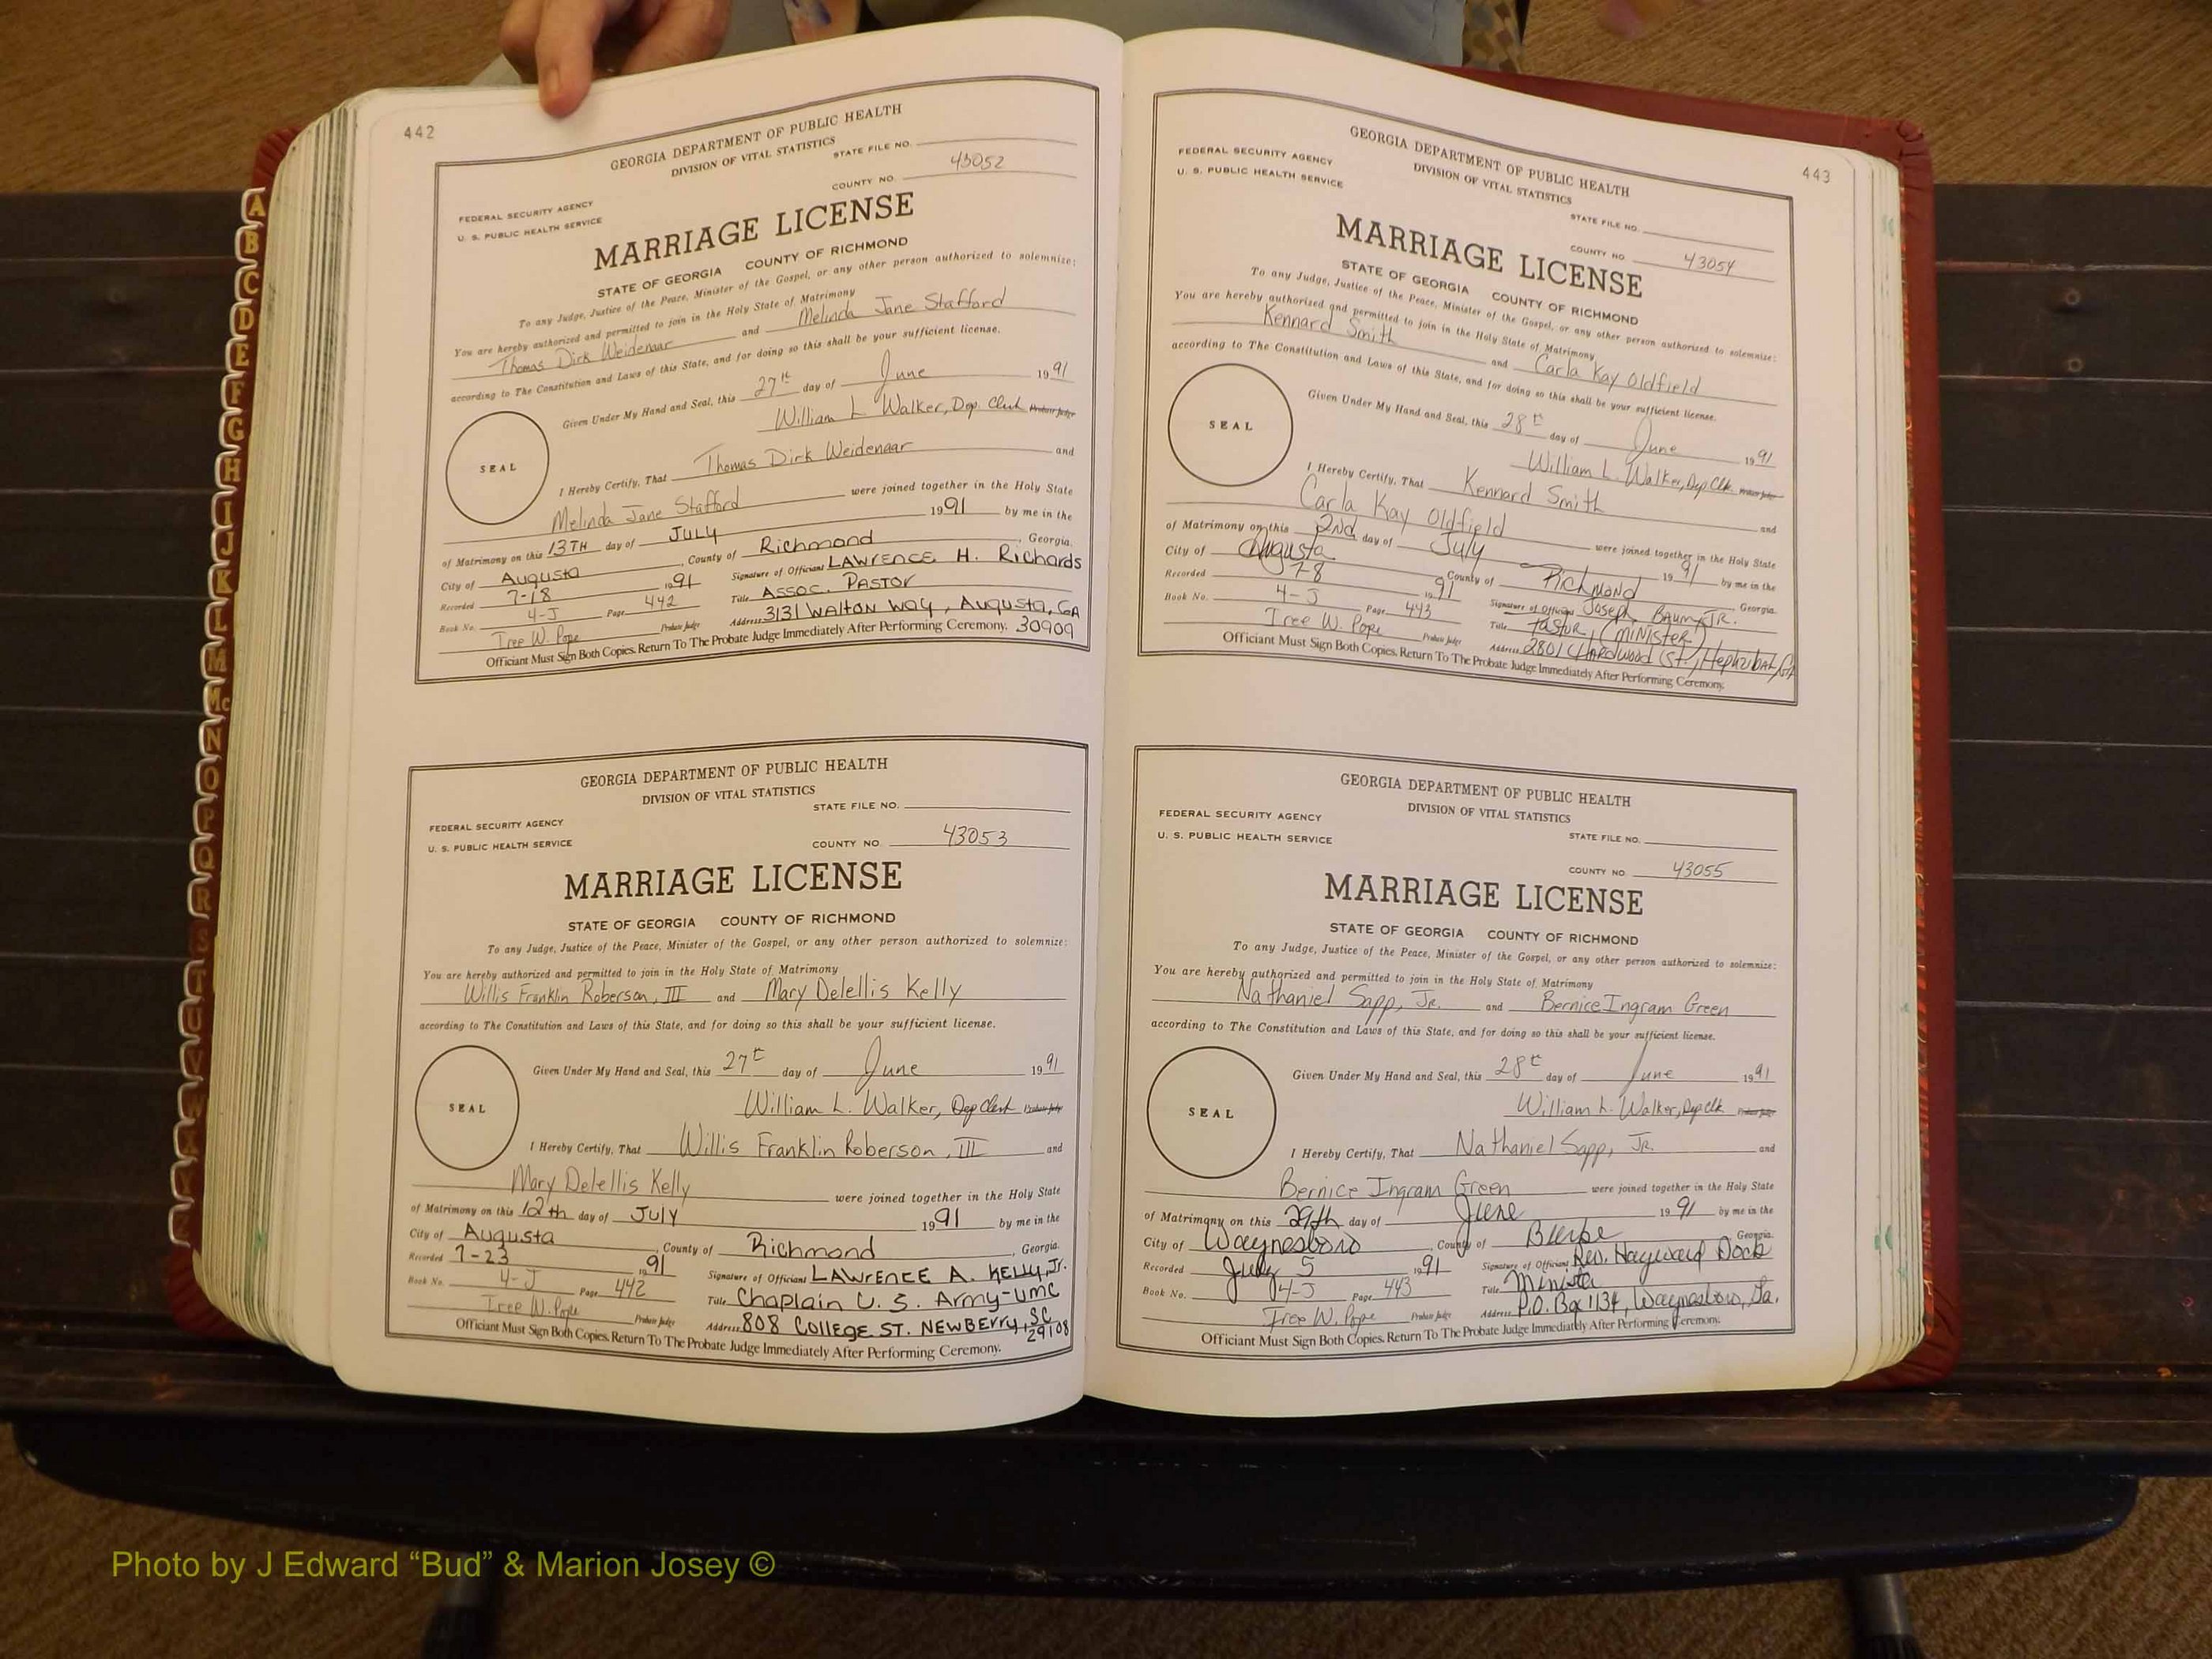 442
GEORGIA DEPARTMENT OF PUBLIC HEALTH
DIVISION OF VITAL STATISTICS
STATE FILE NO.
COUNTY NO. 43052
FEDERAL SECURITY AGENCY
U. S. PUBLIC HEALTH SERVICE
MARRIAGE LICENSE
STATE OF GEORGIA COUNTY OF RICHMOND
To any Judge, Justice of the Peace, Minister of the Gospel, or any other person authorized to solemnize:
You are hereby authorized and permitted to join in the Holy State of Matrimony
Thomas Dirk Weidenaar and Melinda Jane Stafford
according to The Constitution and Laws of this State, and for doing so this shall be your sufficient license.
Given Under My Hand and Seal, this 27th day of June 1991
William L Walker, Dep. Clerk Probate Judge
SEAL
I Hereby Certify, That Thomas Dirk Weidenaar and
Melinda Jane Stafford were joined together in the Holy State
of Matrimony on this 13TH day of JULY 1991 by me in the
City of Augusta, County of Richmond, Georgia.
Recorded 7-18 1991 Signature of Officiant LAWRENCE H. Richards
Book No. 4-J Page 442 Title Assoc. Pastor
Iree W. Pope Probate Judge Address 3131 Walton Way, Augusta, GA
Officiant Must Sign Both Copies. Return To The Probate Judge Immediately After Performing Ceremony. 30909
GEORGIA DEPARTMENT OF PUBLIC HEALTH
DIVISION OF VITAL STATISTICS
STATE FILE NO.
FEDERAL SECURITY AGENCY
U. S. PUBLIC HEALTH SERVICE
COUNTY NO. 43053
MARRIAGE LICENSE
STATE OF GEORGIA COUNTY OF RICHMOND
To any Judge, Justice of the Peace, Minister of the Gospel, or any other person authorized to solemnize:
You are hereby authorized and permitted to join in the Holy State of Matrimony
Willis Franklin Roberson, III and Mary Delellis Kelly
according to The Constitution and Laws of this State, and for doing so this shall be your sufficient license.
Given Under My Hand and Seal, this 27t day of June 1991
William L. Walker, Dep Clerk Probate Judge
SEAL
I Hereby Certify, That Willis Franklin Roberson, III and
Mary Delellis Kelly were joined together in the Holy State
of Matrimony on this 12th day of JULY 1991 by me in the
City of Augusta, County of Richmond, Georgia.
Recorded 7-23 1991 Signature of Officiant LAWRENCE A. KELLY, Jr.
Book No. 4-J Page 442 Title Chaplain U. S. Army-UMC
Iree W. Pope Probate Judge Address 808 COLLEGE ST. NEWBERRY, SC
29108
Officiant Must Sign Both Copies. Return To The Probate Judge Immediately After Performing Ceremony.
443
GEORGIA DEPARTMENT OF PUBLIC HEALTH
DIVISION OF VITAL STATISTICS
FEDERAL SECURITY AGENCY
U. S. PUBLIC HEALTH SERVICE
STATE FILE NO.
COUNTY NO. 43054
MARRIAGE LICENSE
STATE OF GEORGIA COUNTY OF RICHMOND
To any Judge, Justice of the Peace, Minister of the Gospel, or any other person authorized to solemnize:
You are hereby authorized and permitted to join in the Holy State of Matrimony
Kennard Smith and Carla Kay Oldfield
according to The Constitution and Laws of this State, and for doing so this shall be your sufficient license.
Given Under My Hand and Seal, this 28t day of June 1991
William L. Walker, Dep Clk. Probate Judge
SEAL
I Hereby Certify, That Kennard Smith and
Carla Kay Oldfield were joined together in the Holy State
of Matrimony on this 2nd day of July 1991 by me in the
City of Augusta County of Richmond Georgia.
Recorded 7-8 1991 Signature of Officiant Joseph Baum, JR.
Book No. 4-J Page 443 Title Pastor, (Minister)
Iree W. Pope Probate Judge Address 2801 Hardwood St., Hephzibah, GA
Officiant Must Sign Both Copies. Return To The Probate Judge Immediately After Performing Ceremony.
GEORGIA DEPARTMENT OF PUBLIC HEALTH
DIVISION OF VITAL STATISTICS
FEDERAL SECURITY AGENCY
U. S. PUBLIC HEALTH SERVICE
STATE FILE NO.
COUNTY NO. 43055
MARRIAGE LICENSE
STATE OF GEORGIA COUNTY OF RICHMOND
To any Judge, Justice of the Peace, Minister of the Gospel, or any other person authorized to solemnize:
You are hereby authorized and permitted to join in the Holy State of Matrimony
Nathaniel Sapp, Jr. and Bernice Ingram Green
according to The Constitution and Laws of this State, and for doing so this shall be your sufficient license.
Given Under My Hand and Seal, this 28t day of June 1991
William L. Walker, Dep Clk Probate Judge
SEAL
I Hereby Certify, That Nathaniel Sapp, JR. and
Bernice Ingram Green were joined together in the Holy State
of Matrimony on this 29th day of June 1991 by me in the
City of Waynesboro, County of Burke Georgia.
Recorded July 5 1991 Signature of Officiant Rev. Hayward Dock
Book No. 4-J Page 443 Title Minister
Iree W. Pope Probate Judge Address P.O. Box 1134, Waynesboro, Ga.
Officiant Must Sign Both Copies. Return To The Probate Judge Immediately After Performing Ceremony.
A
B
C
D
E
F
G
H
I
J
K
L
M
Mc
N
O
P
Q
R
S
T
U
V
W
Photo by J Edward “Bud” & Marion Josey ©